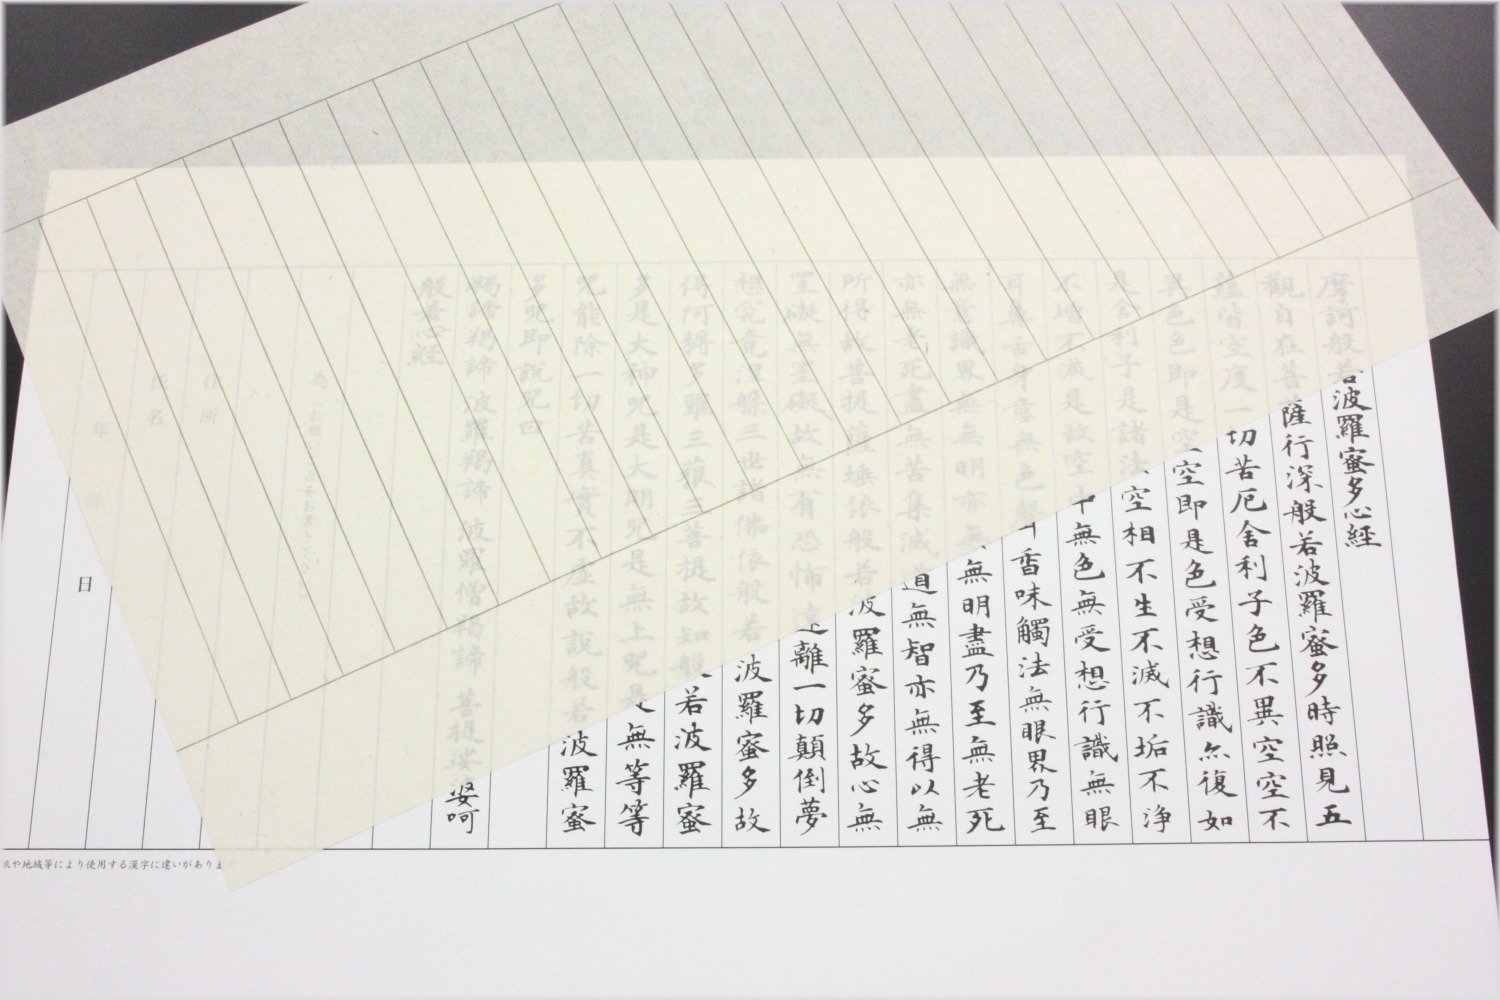 摩訶般若波羅蜜多心経
觀自在菩薩行深般若波羅蜜多時照見五
蘊皆空度一切苦厄舍利子色不異空空不
異色色即是空空即是色受想行識亦復如
是舍利子是諸法空相不生不滅不垢不浄
不増不減是故空中無色無受想行識無眼
耳鼻舌身意無色聲香味觸法無眼界乃至
無意識界無無明亦無無明盡乃至無老死
亦無老死盡無苦集滅道無智亦無得以無
所得故菩提薩埵依般若波羅蜜多故心無
罣礙無罣礙故無有恐怖遠離一切顛倒夢
想究竟涅槃三世諸佛依般若波羅蜜多故
得阿耨多羅三藐三菩提故知般若波羅蜜
多是大神咒是大明咒是無上咒是無等等
咒能除一切苦真實不虚故説般若波羅蜜
多咒即説咒曰
羯諦羯諦 波羅羯諦 波羅僧羯諦 菩提娑婆呵
般若心経
為(お願いごとをお書き下さい)
住所
氏名
年 月 日
派や地域等により使用する漢字に違いがありま